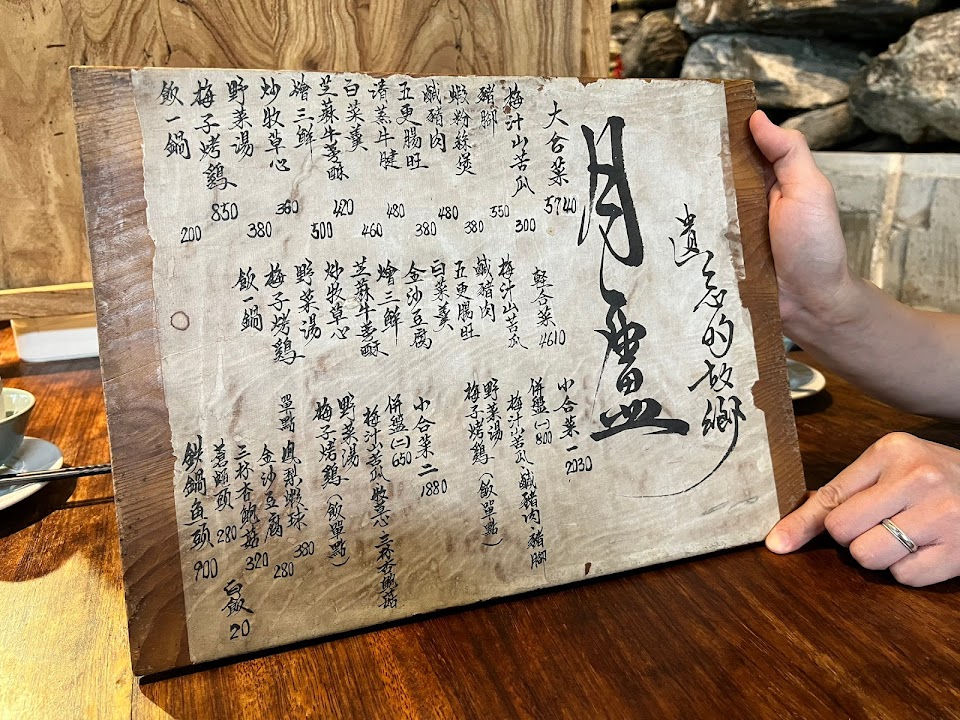 遺忘的故鄉
月廬
大合菜 5740
梅汁山苦瓜 300
豬腳 550
蝦粉絲煲 380
鹹豬肉 480
五更腸旺 380
清蒸牛腱 480
白菜羹 460
芝蔴牛蒡酥 420
燴三鮮 500
炒牧草心 360
野菜湯 380
梅子烤鷄 850
飯一鍋 200
輕合菜 4610
梅汁山苦瓜
鹹豬肉
五更腸旺
白菜羹
金沙豆腐
燴三鮮
芝蔴牛蒡酥
炒牧草心
野菜湯
梅子烤鷄
飯一鍋
小合菜一 2030
併盤(一) 800
梅汁山苦瓜、鹹豬肉、豬腳
野菜湯
梅子烤鷄(飯單點)
小合菜二 1880
併盤(二) 650
梅汁山苦瓜 牧草心 三杯杏鮑菇
野菜湯
梅子烤鷄(飯單點)
單點
鳳梨蝦球 380
金沙豆腐 280
三杯杏鮑菇 320
蒼蠅頭 280
鉄鍋魚頭 900
白飯 20